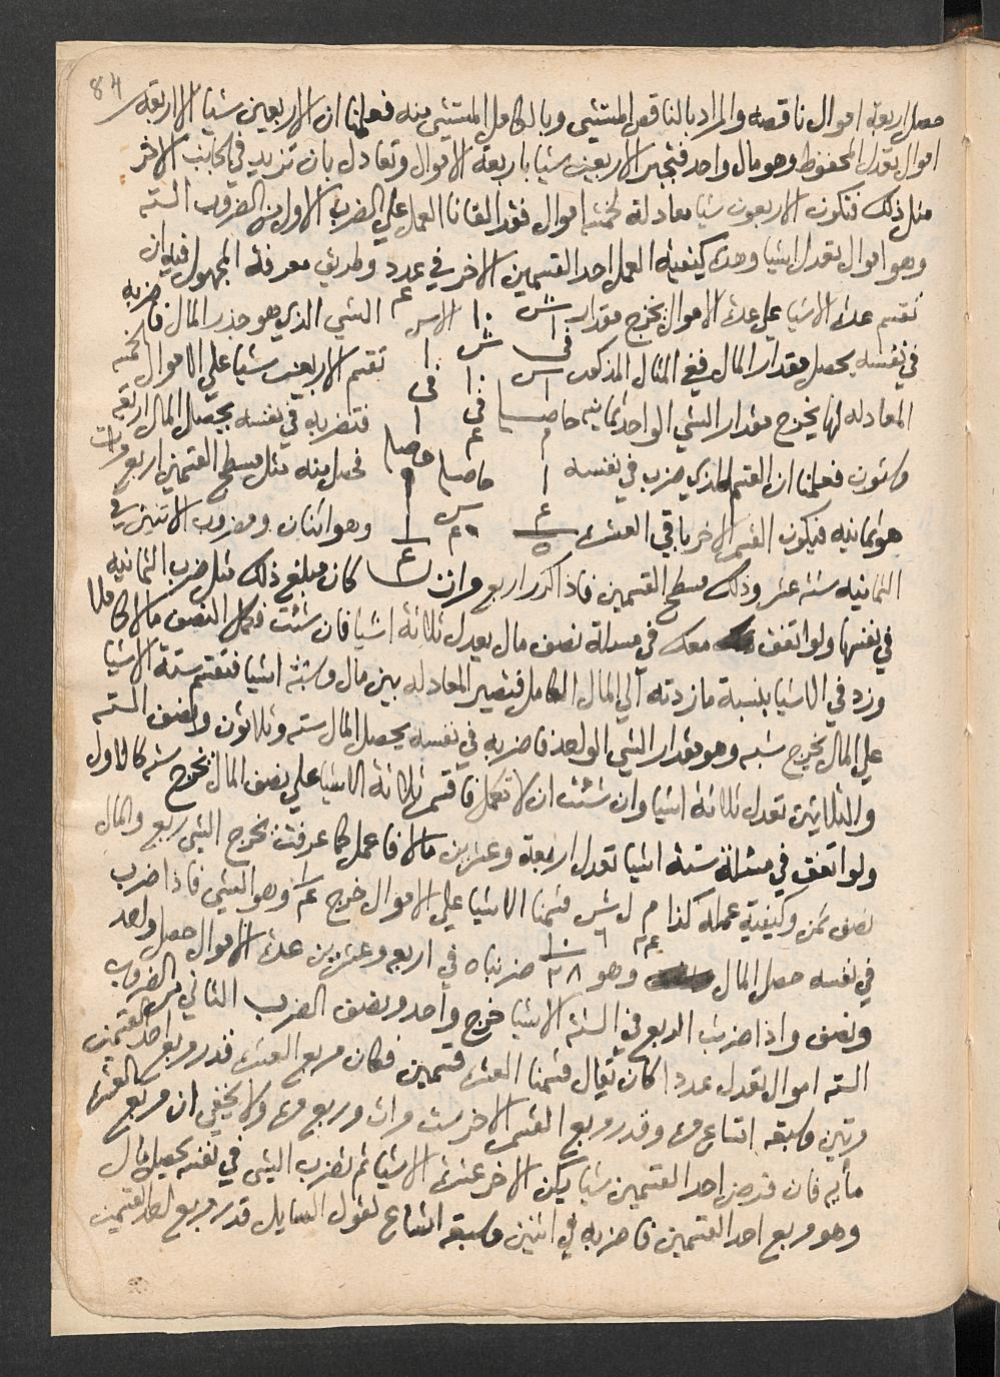 84
حصل اربعة اموال ناقصه والمراد بالناقص المستثني وبالكامل المستثني منه فعلمنا ان الاربعين شيا الا اربعة
اموال تعدل المحفوظ وهو مال واحد فتجبر الاربعين شيا باربعة الاموال وتعادل بان تزيد في الجانب الاخر
مثل ذلك فتكون الاربعون شيا معادلة لخمسة اموال فقد القانا العمل علي الضرب الاول من الضروب الستة
وهو اموال تعدل اشيا وهذه كيفية العمل احد القسمين الاخر في عدد وطريق معرفة المجهول فيه ان
تقسم عدة الاشيا علي عدة الاموال يخرج مقدار الشي الذي هو جذر المال فاضربه
في نفسه يحصل مقدار المال ففي المثال المذكور تقسم الاربعين شيا علي الاموال الخمسة
المعادله لها يخرج مقدار الشي الواحد ثمانيه فتضربه في نفسه يحصل المال اربعة
وستون فعلمنا ان القسم الذي ضرب في نفسه فحصل منه مثل مسطح القسمين اربع مرات
هو ثمانيه فيكون القسم الاخر باقي العشرة وهو اثنان ومضروب الاثنين في
الثمانيه ستة عشر وذلك مسطح القسمين فاذا كرر اربع مرات كان مبلغ ذلك مثل ضرب الثمانيه
في نفسها ولو اتفق معك في مسالة نصف مال يعدل ثلاثة اشيا فان شئت فكمل النصف مالا كاملا
وزد في الاشيا بنسبة ما زدته الي المال الكامل فتصير المعادله بين مال وستة اشيا فتقسم ستة الاشيا
علي المال يخرج ستة وهو مقدار الشي الواحد فاضربه في نفسه يحصل المال ستة وثلاثون ونصف الستة
والثلاثين تعدل ثلاثة اشيا وان شئت ان لا تكمل فاقسم ثلاثة الاشيا علي نصف المال يخرج ستة كالاول
ولو اتفق في مسئلة ستة اشيا تعدل اربعة وعشرين مالا فاعمل كما عرفت يخرج الشي ربع والمال
نصف ثمن وكيفية عمله كذا م ل ش قسمنا الاشيا علي الاموال خرج وهو الشي فاذا ضرب
في نفسه حصل المال وهو ضربناه في اربعة وعشرين عدة الاموال حصل واحد
ونصف واذا ضربت الربع في الستة الاشيا خرج واحد ونصف الضرب الثاني من الضروب
الستة اموال تعدل عددا كان يقال قسمنا العشرة قسمين فكان مربع العشرة قدر مربع احد القسمين
مرتين وسبعة اتساع مرة وقدر مربع القسم الاخر ست مرات وربع مرة ولا يخفي ان مربع العشرة
مأيه فان فرض احد القسمين شيا يكن الاخر عشرة الا شيا ثم تضرب الشي في نفسه يحصل مال
وهو مربع احد القسمين فاضربه في اثنين وسبعة اتساع لقول السايل قدر مربع احد القسمين